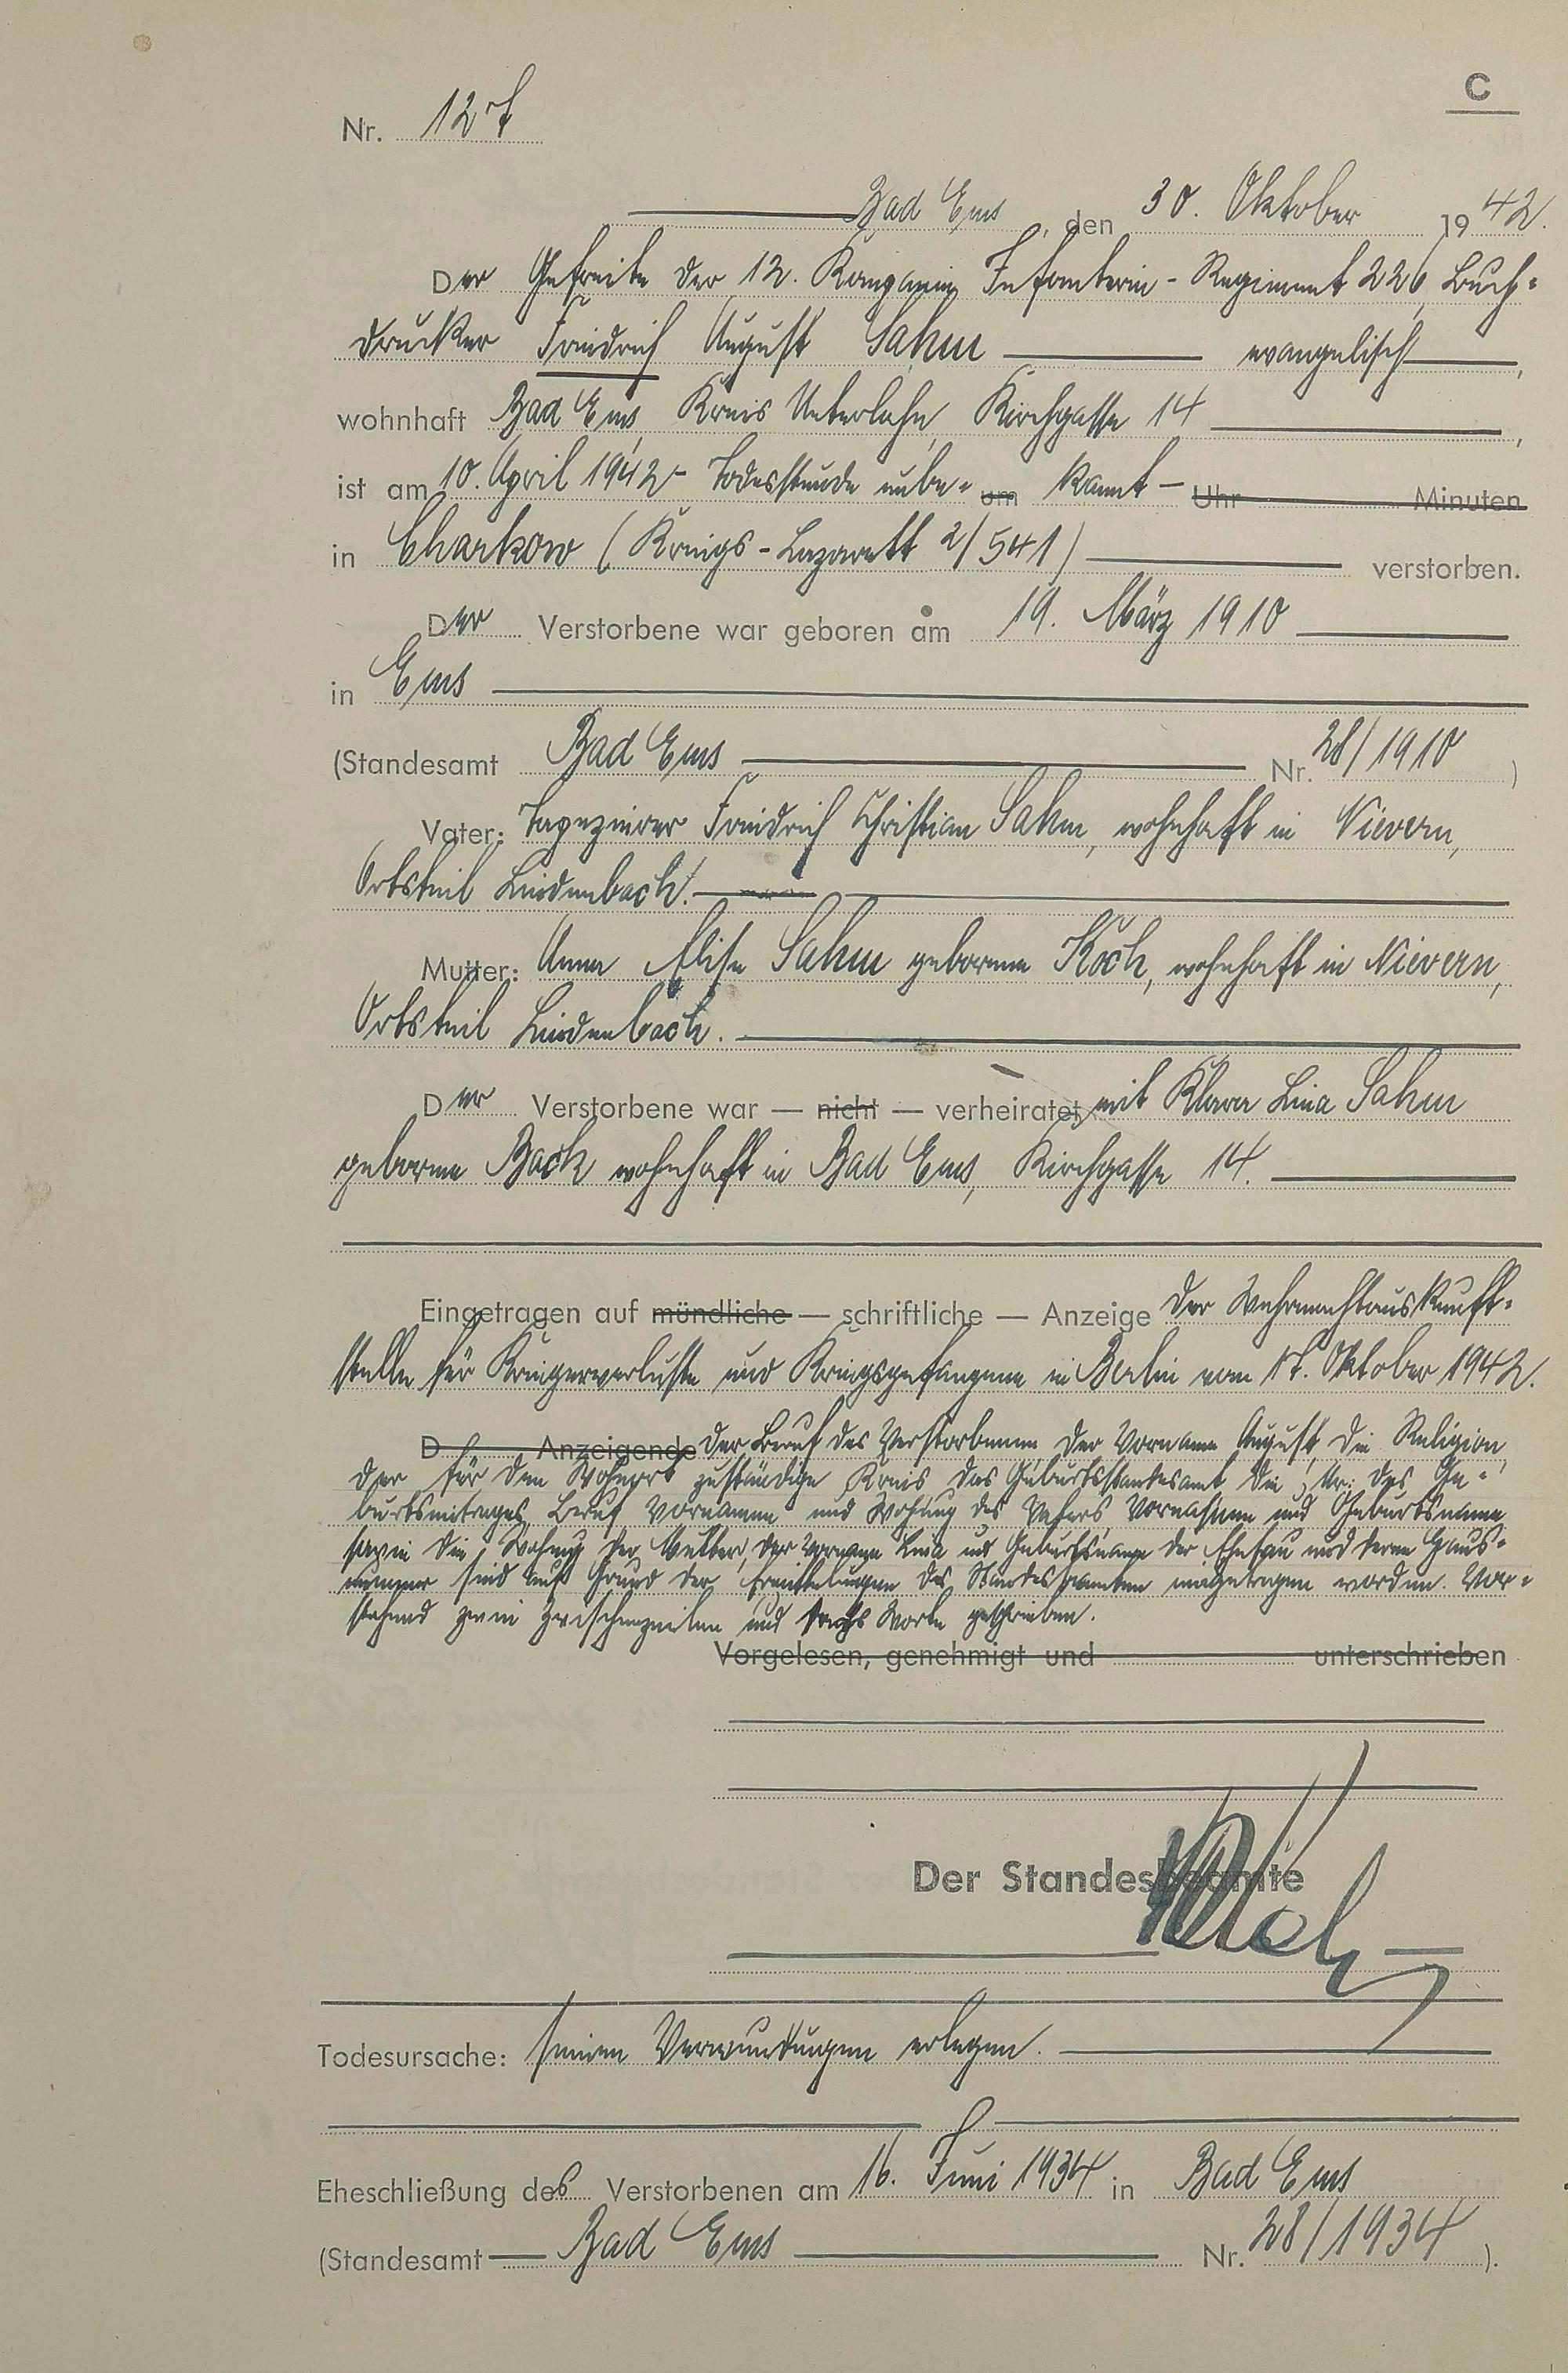 C
Nr. 127
Bad Ems, den 30. Oktober 1942.
Der Gefreite der 12. Kompanie Infanterie-Regiment 226, Buch-
drucker Friedrich August Sahm evangelisch,
wohnhaft Bad Ems, Kreis Unterlahn, Kirchgasse 14,
ist am 10. April 1942 - Todesstunde unbe- um kannt - Uhr Minuten
in Charkow (Kriegs-Lazarett 2/541) verstorben.
Der Verstorbene war geboren am 19. März 1910
in Ems
(Standesamt Bad Ems Nr. 28/1910)
Vater: Tapezierer Friedrich Christian Sahm, wohnhaft in Nievern,
Ortsteil Lindenbach.
Mutter: Anna Elise Sahm geborene Koch, wohnhaft in Nievern,
Ortsteil Lindenbach.
Der Verstorbene war — nicht — verheiratet mit Klara Lina Sahm
geborene Bach wohnhaft in Bad Ems, Kirchgasse 14.
Eingetragen auf mündliche — schriftliche — Anzeige der Wehrmachtauskunft-
stelle für Kriegerverluste und Kriegsgefangene in Berlin vom 17. Oktober 1942.
D Anzeigende Der Beruf des Verstorbenen, der Vorname August, die Religion,
der für den Wohnort zuständige Kreis, das Geburtsstandesamt, die Nr. des Ge-
burtseintrages, Beruf, Vornamen und Wohnung des Vaters, Vornamen und Geburtsname
sowie die Wohnung der Mutter, der Vorname Lina und Geburtsname der Ehefrau und deren Haus-
nummer sind auf Grund der Ermittelungen des Standesbeamten eingetragen worden. Vor-
stehend zwei Zwischenzeilen und sechs Worte geschrieben.
Vorgelesen, genehmigt und unterschrieben
Der Standesbeamte
Todesursache: seinen Verwundungen erlegen.
Eheschließung des Verstorbenen am 16. Juni 1934 in Bad Ems
(Standesamt Bad Ems Nr. 28/1934).